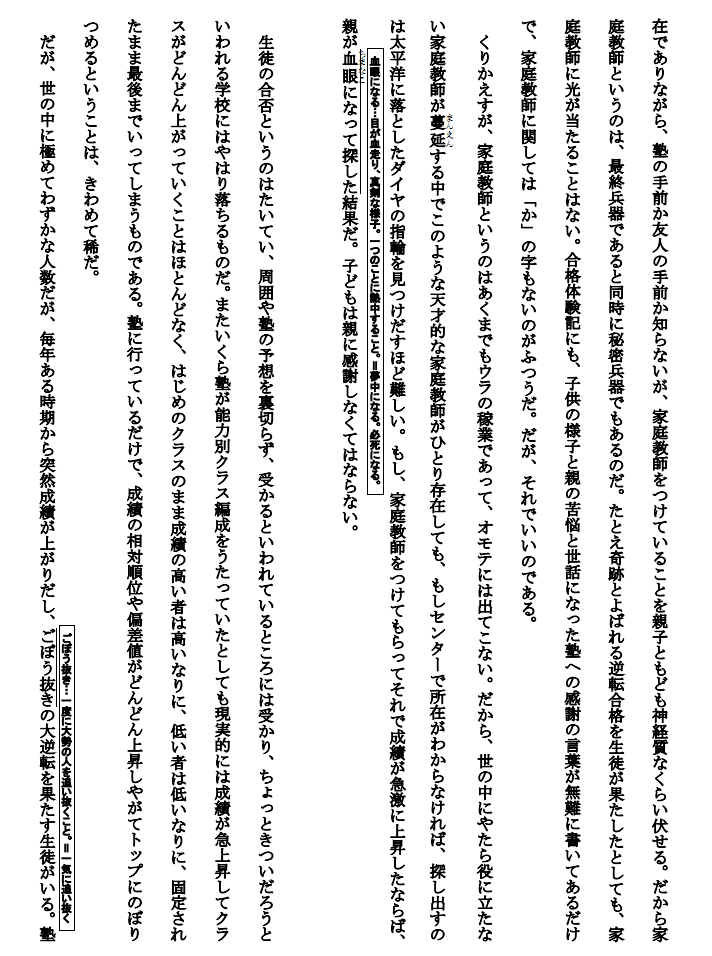 在でありながら、塾の手前か友人の手前か知らないが、家庭教師をつけていることを親子ともども神経質なくらい伏せる。だから家
庭教師というのは、最終兵器であると同時に秘密兵器でもあるのだ。たとえ奇跡とよばれる逆転合格を生徒が果たしたとしても、家
庭教師に光が当たることはない。合格体験記にも、子供の様子と親の苦悩と世話になった塾への感謝の言葉が無難に書いてあるだけ
で、家庭教師に関しては「か」の字もないのがふつうだ。だが、それでいいのである。
くりかえすが、家庭教師というのはあくまでもウラの稼業であって、オモテには出てこない。だから、世の中にやたら役に立たな
まんえん
い家庭教師が蔓延する中でこのような天才的な家庭教師がひとり存在しても、もしセンターで所在がわからなければ、探し出すの
は太平洋に落としたダイヤの指輪を見つけだすほど難しい。もし、家庭教師をつけてもらってそれで成績が急激に上昇したならば、
血眼になる…目が血走り、真剣な様子。一つのことに熱中すること。＝夢中になる。必死になる。
ちまなこ
親が血眼になって探した結果だ。子どもは親に感謝しなくてはならない。
生徒の合否というのはたいてい、周囲や塾の予想を裏切らず、受かるといわれているところには受かり、ちょっときついだろうと
いわれる学校にはやはり落ちるものだ。またいくら塾が能力別クラス編成をうたっていたとしても現実的には成績が急上昇してクラ
スがどんどん上がっていくことはほとんどなく、はじめのクラスのまま成績の高い者は高いなりに、低い者は低いなりに、固定され
たまま最後までいってしまうものである。塾に行っているだけで、成績の相対順位や偏差値がどんどん上昇しやがてトップにのぼり
つめるということは、きわめて稀だ。
ごぼう抜き…一度に大勢の人を追い抜くこと。＝一気に追い抜く
だが、世の中に極めてわずかな人数だが、毎年ある時期から突然成績が上がりだし、ごぼう抜きの大逆転を果たす生徒がいる。塾